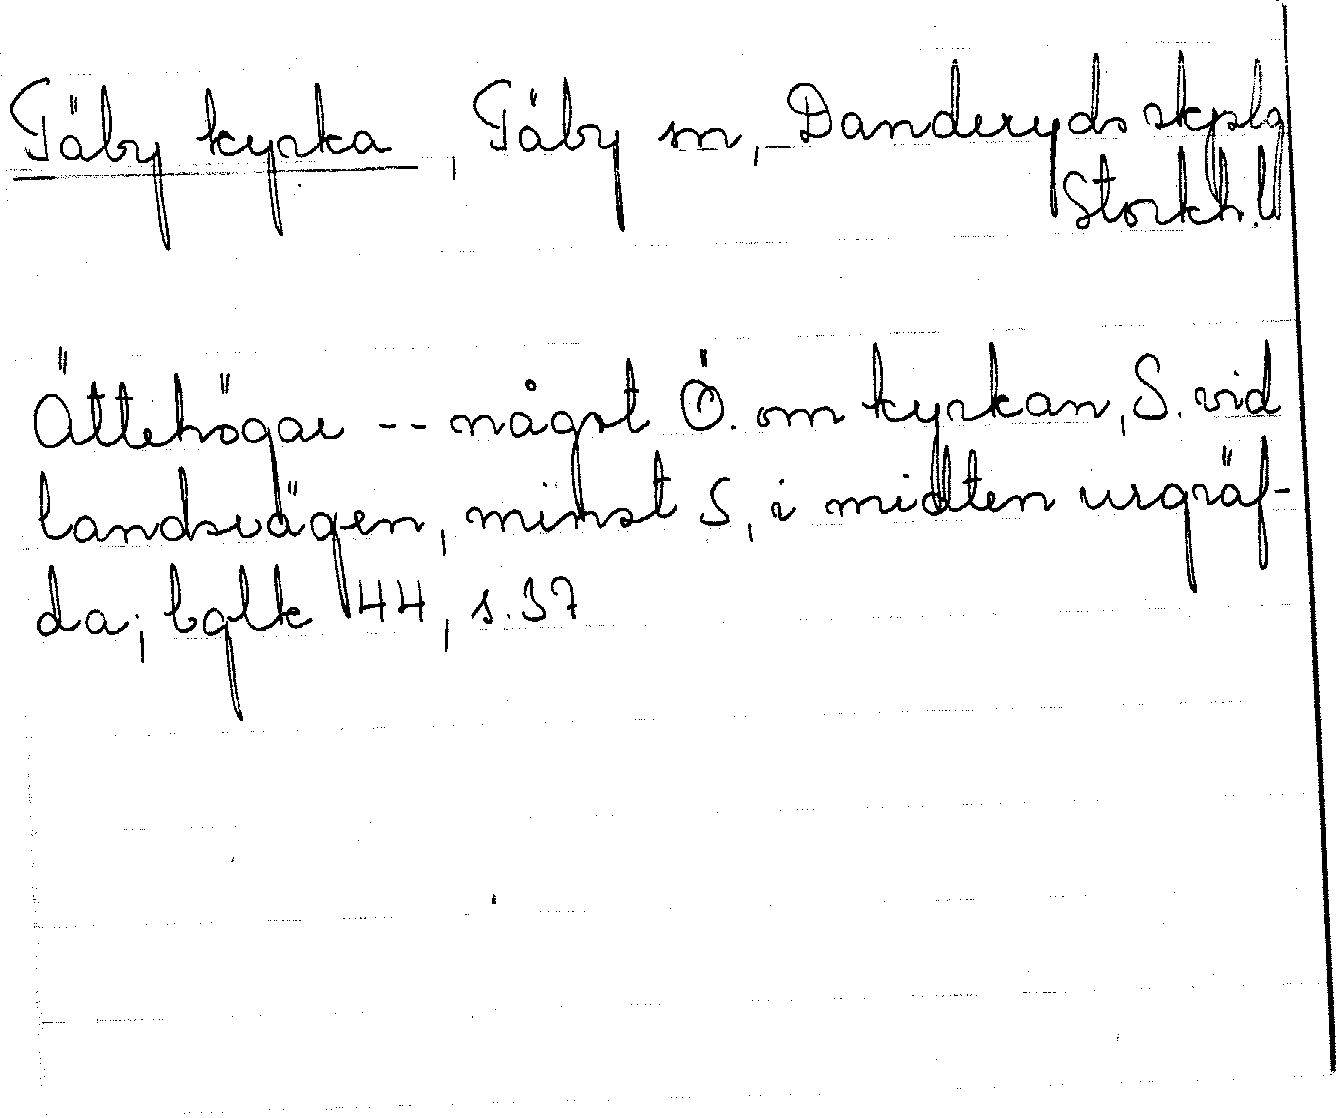 Täby kyrka, Täby sn, Danderyds skplg
Stockh. l
Ättehögar -- något Ö. om kyrkan, S. vid
landsvägen, minst 5, i midten urgräf-
da; bglk 44, s. 37